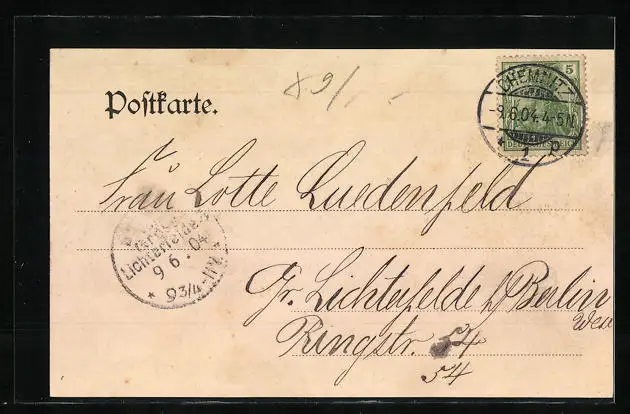 89/-
5
CHEMNITZ
-9.6.04.4-5N.
* 1 e
DEUTSCHES REICH
Postkarte.
Frau Lotte Luedenfeld
Gross
Lichterfelde
9 6. 04
* 93/4-
Gr. Lichterfelde b/Berlin
West
Ringstr. 54
54